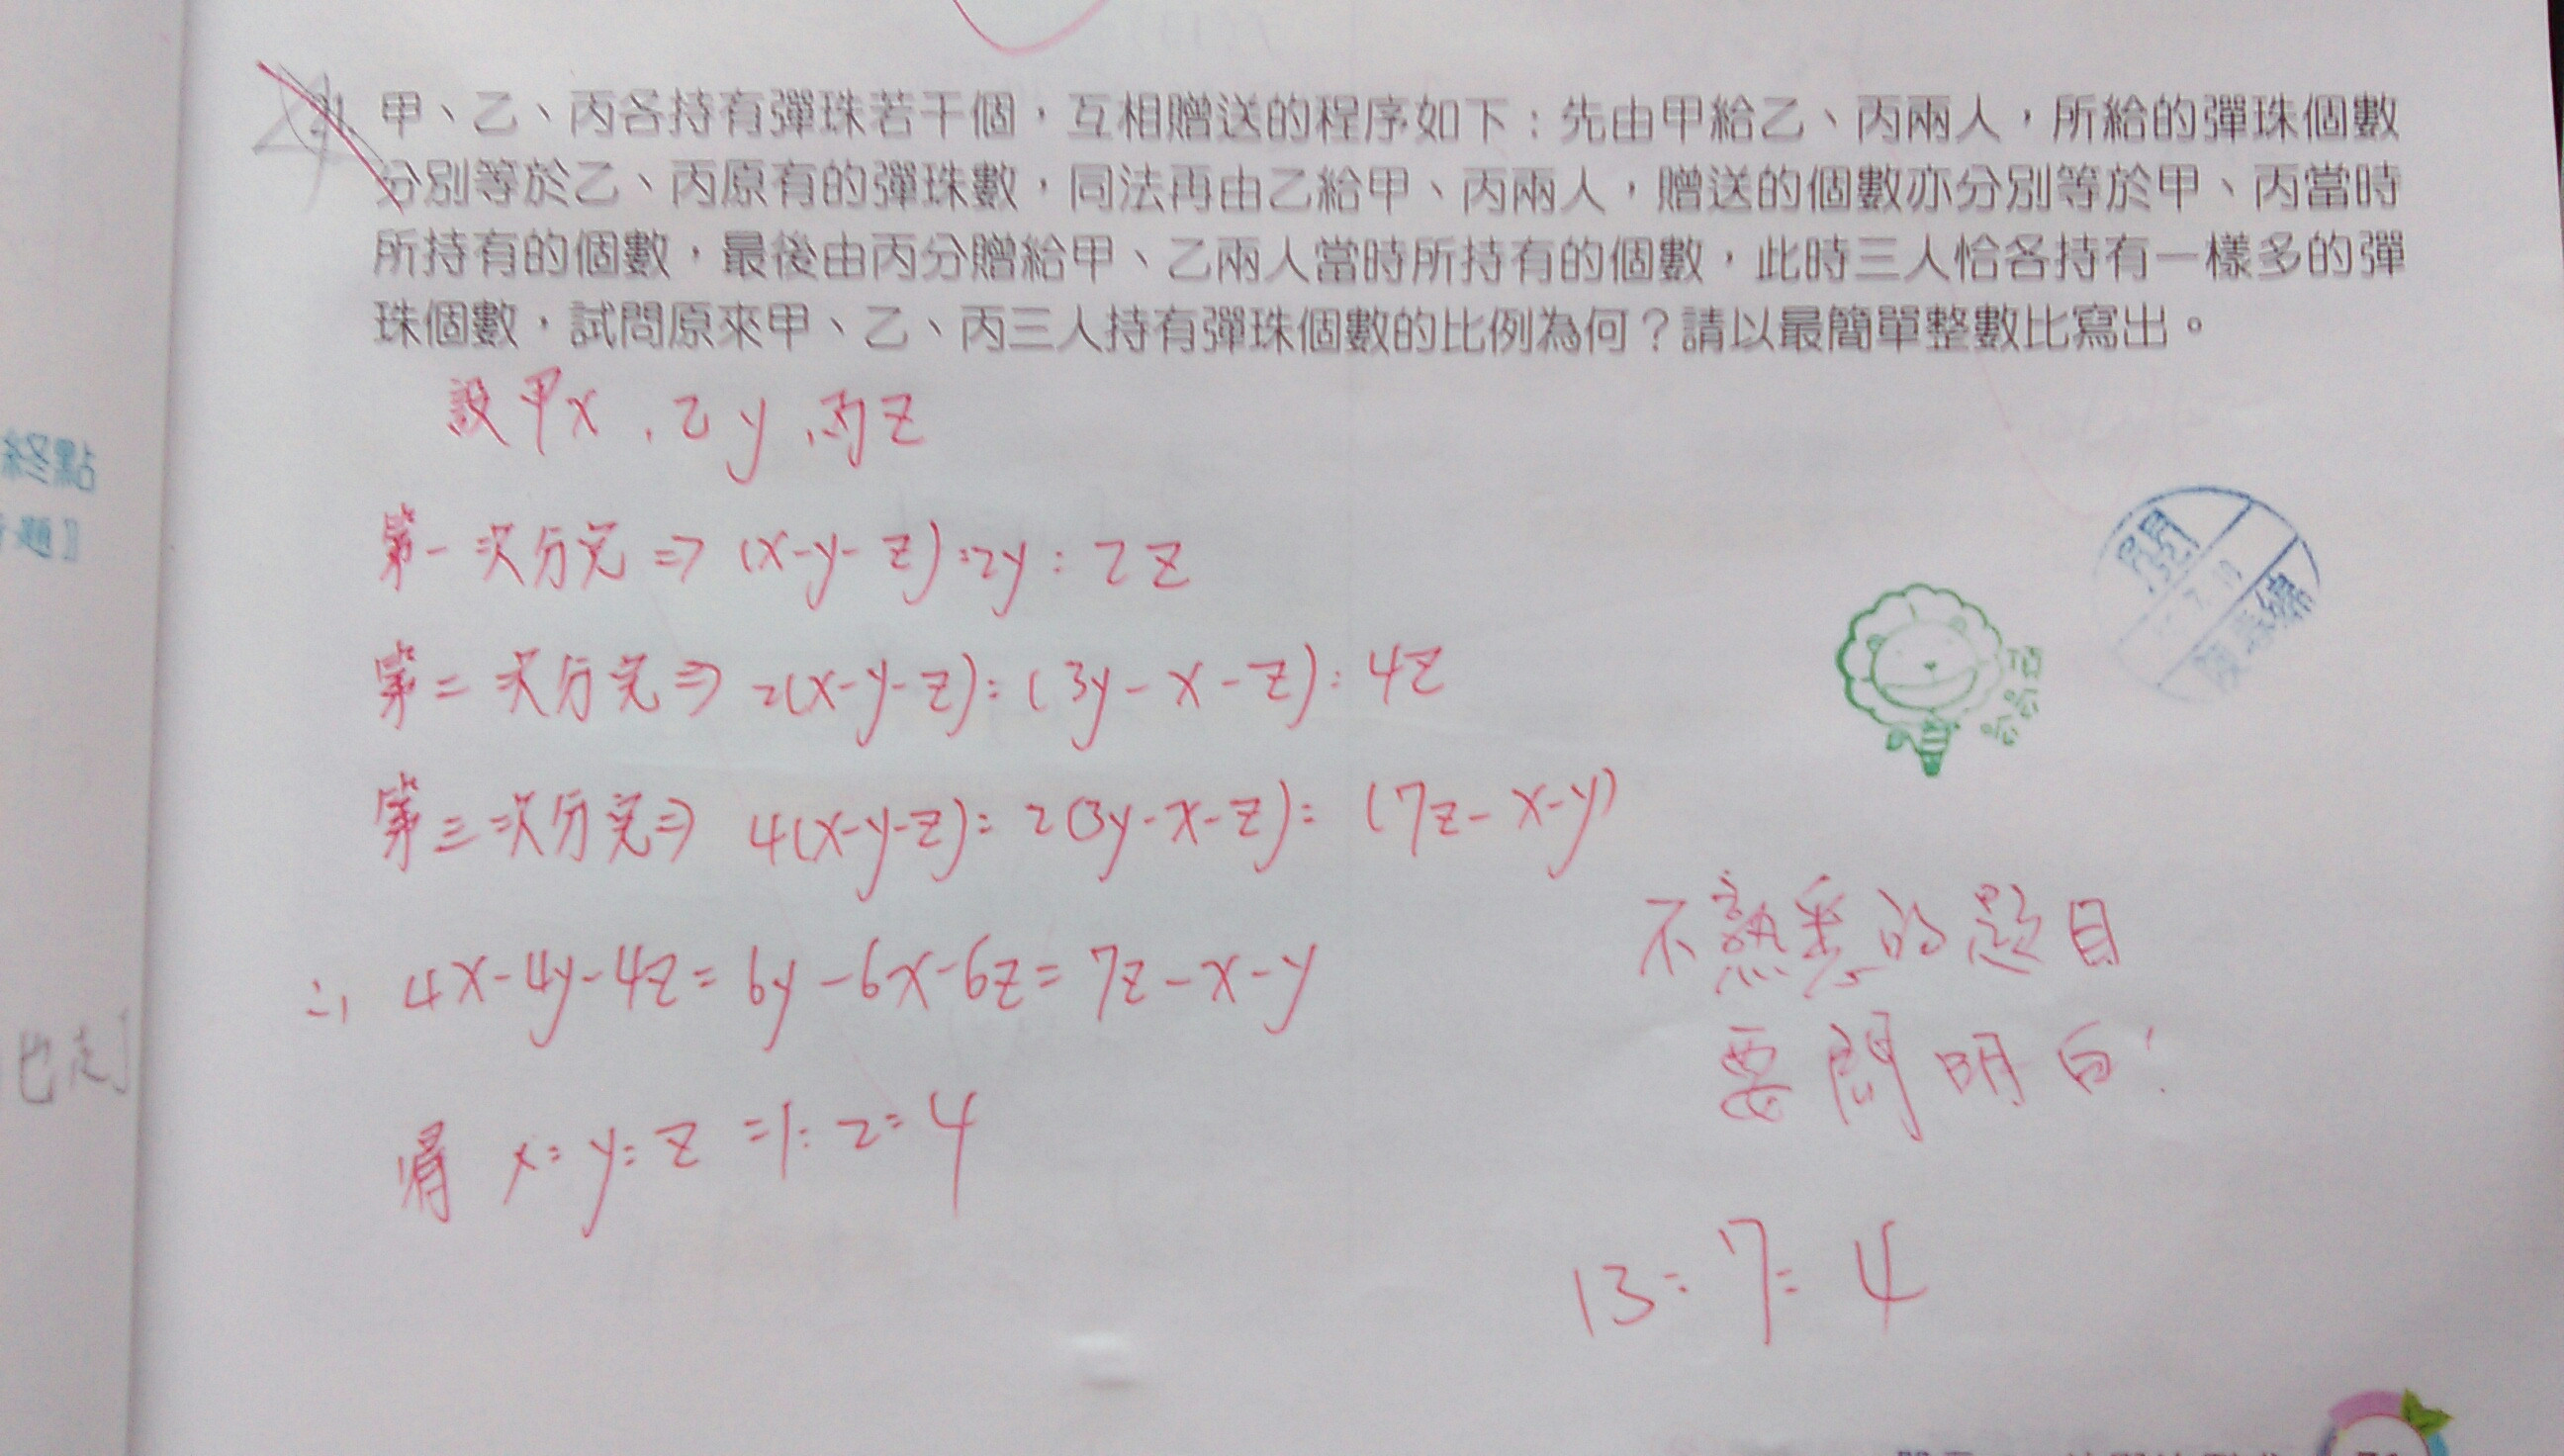 甲、乙、丙各持有彈珠若干個，互相贈送的程序如下：先由甲給乙、丙兩人，所給的彈珠個數
分別等於乙、丙原有的彈珠數，同法再由乙給甲、丙兩人，贈送的個數亦分別等於甲、丙當時
所持有的個數，最後由丙分贈給甲、乙兩人當時所持有的個數，此時三人恰各持有一樣多的彈
珠個數，試問原來甲、乙、丙三人持有彈珠個數的比例為何？請以最簡單整數比寫出。
設甲x，乙y，丙z
終點
題】
第一次分完⇒(x-y-z):2y:2z
第二次分完⇒2(x-y-z):(3y-x-z):4z
第三次分完⇒4(x-y-z):2(3y-x-z):(7z-x-y)
閱
哈哈
不熟悉的題目
∴ 4x-4y-4z=6y-6x-6z=7z-x-y
要問明白！
也走]
得 x:y:z=1:2:4
13:7:4